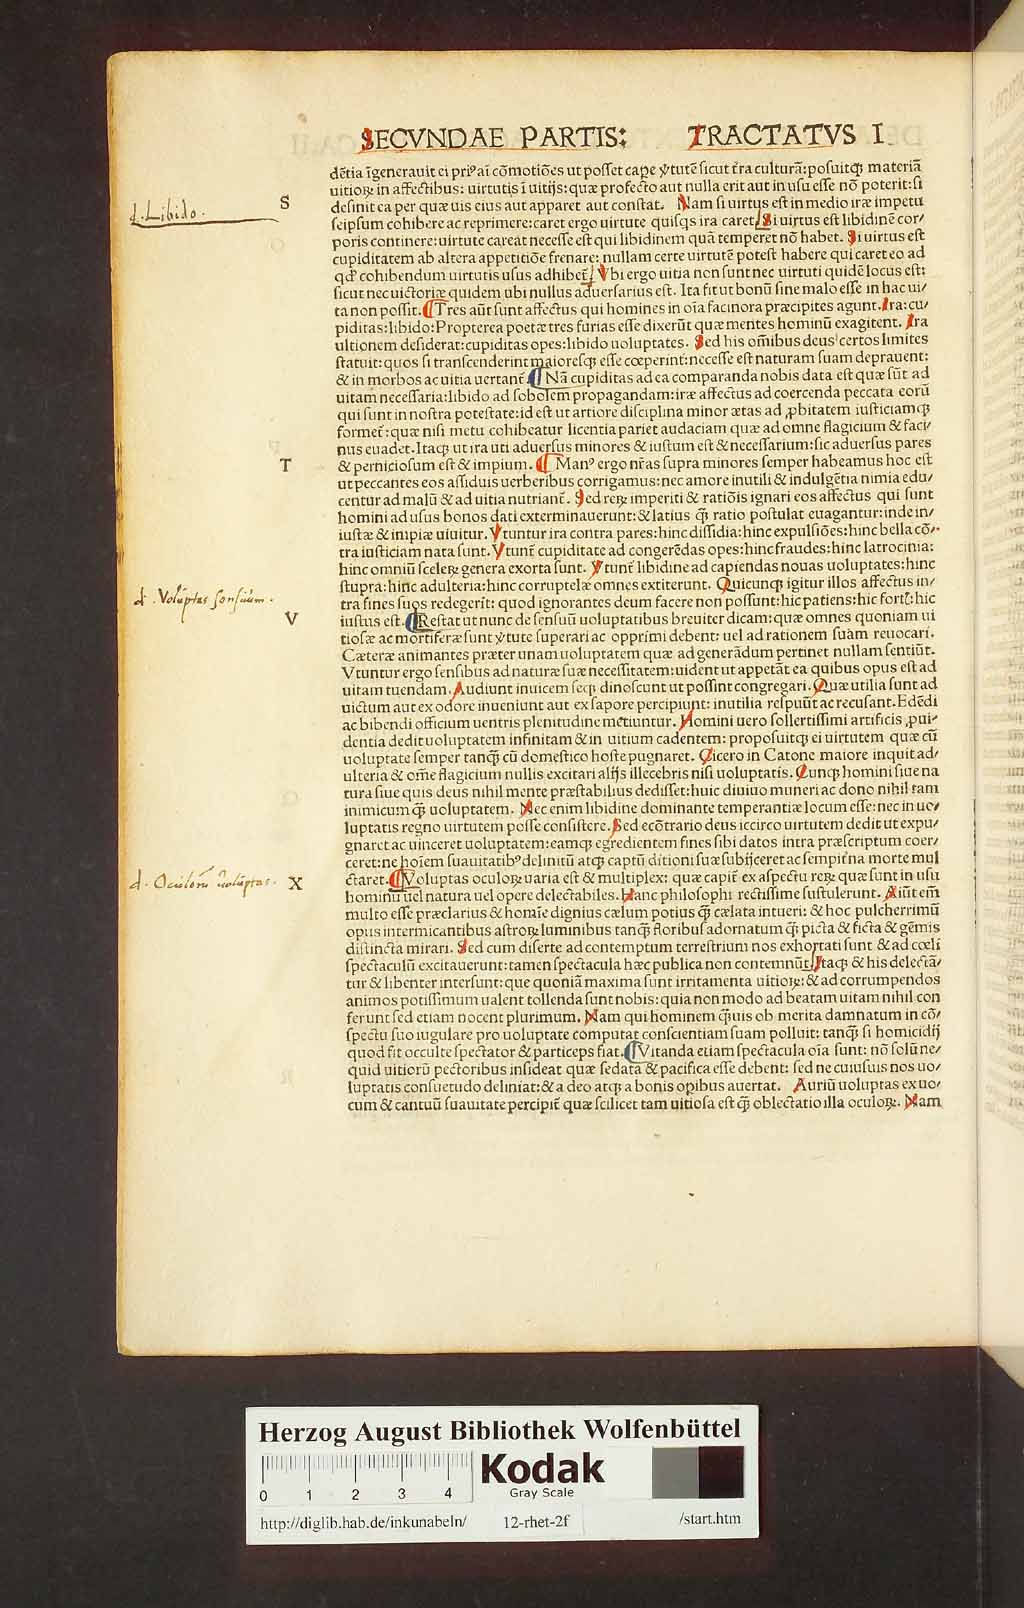 SECVNDAE PARTIS: TRACTATVS I
dētia īgenerauit ei pri⁹ aī cōmotiōes ut posset cape v̄tutē sicut tr̄a culturā: posuitqꝫ materiā
uitioꝝ in affectibus: uirtutis ī uitijs: quæ profecto aut nulla erit aut in usu esse nō poterit: si
S
d. Libido.
desinit ea per quæ uis eius aut apparet aut constat. Nam si uirtus est in medio iræ impetu
seipsum cohibere ac reprimere: caret ergo uirtute quisqs ira caret. Si uirtus est libidinē cor/
poris continere: uirtute careat necesse est qui libidinem quā temperet nō habet. Si uirtus est
cupiditatem ab altera appetitiōe frenare: nullam certe uirtutē potest habere qui caret eo ad
qd' cohibendum uirtutis usus adhibet̄. Vbi ergo uitia non sunt nec uirtuti quidē locus est:
sicut nec uictoriæ quidem ubi nullus aduersarius est. Ita fit ut bonū sine malo esse in hac ui/
ta non possit. ¶ Tres aūt sunt affectus qui homines in oīa facinora præcipites agunt. Ira: cu/
piditas: libido: Propterea poetæ tres furias esse dixerūt quæ mentes hominū exagitent. Ira
ultionem desiderat: cupiditas opes: libido uoluptates. Sed his om̄ibus deus certos limites
statuit: quos si transcenderint maioresqꝫ esse cœperint: necesse est naturam suam deprauent:
& in morbos ac uitia uertant̄. ¶ Nā cupiditas ad ea comparanda nobis data est quæ sūt ad
uitam necessaria: libido ad sobolem propagandam: iræ affectus ad coercenda peccata eorū
qui sunt in nostra potestate: id est ut artiore disciplina minor ætas ad ꝓbitatem iusticiamqꝫ
formet̄: quæ nisi metu cohibeatur licentia pariet audaciam quæ ad omne flagicium & faci/
nus euadet. Itaqꝫ ut ira uti aduersus minores & iustum est & necessarium: sic aduersus pares
T
& perniciosum est & impium. ¶ Man⁹ ergo nr̄as supra minores semper habeamus hoc est
ut peccantes eos assiduis uerberibus corrigamus: nec amore inutili & indulgētia nimia edu/
centur ad malū & ad uitia nutriant̄. Sed reꝝ imperiti & ratiōis ignari eos affectus qui sunt
homini ad usus bonos dati exterminauerunt: & latius qꝫ̄ ratio postulat euagantur: inde in/
iustæ & inipiæ uiuitur. Vtuntur ira contra pares: hinc dissidia: hinc expulsiōes: hinc bella cō/
tra iusticiam nata sunt. Vtunt̄ cupiditate ad congerēdas opes: hinc fraudes: hinc latrocinia:
hinc omniū sceleꝝ genera exorta sunt. Vtunt̄ libidine ad capiendas nouas uoluptates: hinc
stupra: hinc adulteria: hinc corruptelæ omnes extiterunt. Quicunqꝫ igitur illos affectus in/
d. Voluptas sensuum.
tra fines suos redegerit: quod ignorantes deum facere non possunt: hic patiens: hic fort̄: hic
V
iustus est. ¶ Restat ut nunc de sensuū uoluptatibus breuiter dicam: quæ omnes quoniam ui
tiosæ ac mortiferæ sunt v̄tute superari ac opprimi debent: uel ad rationem suam reuocari.
Cæteræ animantes præter unam uoluptatem quæ ad generādum pertinet nullam sentiūt.
Vtuntur ergo sensibus ad naturæ suæ necessitatem: uident ut appetāt ea quibus opus est ad
uitam tuendam. Audiunt inuicem seqꝫ dinoscunt ut possint congregari. Quæ utilia sunt ad
uictum aut ex odore inueniunt aut ex sapore percipiunt: inutilia respuūt ac recusant. Edēdi
ac bibendi officium uentris plenitudine metiuntur. Homini uero sollertissimi artificis ꝓui/
dentia dedit uoluptatem infinitam & in uitium cadentem: proposuitqꝫ ei uirtutem quæ cū
uoluptate semper tanqꝫ̄ cū domestico hoste pugnaret. Cicero in Catone maiore inquit ad/
ulteria & om̄e flagicium nullis excitari alijs illecebris nisi uoluptatis. Cunqꝫ homini siue na
tura siue quis deus nihil mente præstabilius dedisset: huic diuiuo muneri ac dono nihil tam
inimicum qꝫ̄ uoluptatem. Nec enim libidine dominante temperantiæ locum esse: nec in uo/
luptatis regno uirtutem posse consistere. Sed ecōtrario deus iccirco uirtutem dedit ut expu/
gnaret ac uinceret uoluptatem: eamqꝫ egredientem fines sibi datos intra præscriptum coer/
ceret: ne hoīem suauitatib⁹ delinitū atqꝫ captū ditioni suæ subijceret ac sempitr̄na morte mul
d. Oculorū uoluptas.
X
ctaret. ¶ Voluptas oculoꝝ uaria est & multiplex: quæ capit̄ ex aspectu reꝝ quæ sunt in usu
hominū uel natura uel opere delectabiles. Hanc philosophi rectissime sustulerunt. Aiūt em̄
multo esse præclarius & homīe dignius cælum potius qꝫ̄ cælata intueri: & hoc pulcherrimū
opus intermicantibus astroꝝ luminibus tanqꝫ̄ floribus adornatum qꝫ̄ picta & ficta & gēmis
distincta mirari. Sed cum diserte ad contemptum terrestrium nos exhortati sunt & ad cœli
spectaculū excitauerunt: tamen spectacula hæc publica non contemnūt. Itaqꝫ & his delectā/
tur & libenter intersunt: que quoniā maxima sunt irritamenta uitioꝝ: & ad corrumpendos
animos potissimum ualent tollenda sunt nobis: quia non modo ad beatam uitam nihil con
ferunt sed etiam nocent plurimum. Nam qui hominem qꝫ̄uis ob merita damnatum in cō/
spectu suo iugulare pro uoluptate computat conscientiam suam polluit: tanqꝫ̄ si homicidij
quod fit occulte spectator & particeps fiat. ¶ Vitanda etiam spectacula oīa sunt: nō solū ne/
quid uitiorū pectoribus insideat quæ sedata & pacifica esse debent: sed ne cuiusuis nos uo/
luptatis consuetudo deliniat: & a deo atqꝫ a bonis opibus auertat. Auriū uoluptas ex uo/
cum & cantuū suauitate percipit̄ quæ scilicet tam uitiosa est qꝫ̄ oblectatio illa oculoꝝ. Nam
Herzog August Bibliothek Wolfenbüttel
0 1 2 3 4
Kodak
Gray Scale
http://diglib.hab.de/inkunabeln/ 12-rhet-2f /start.htm